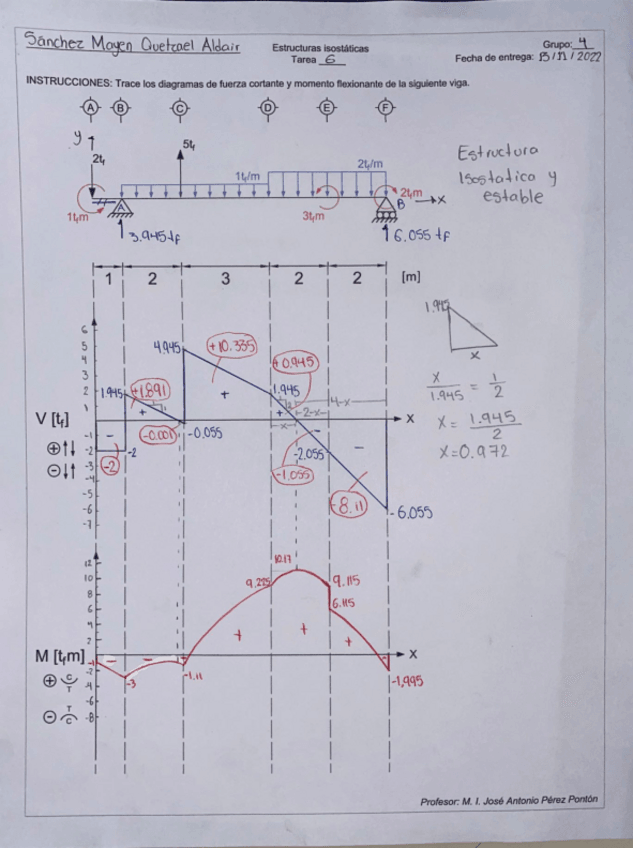 Sánchez Mayen Quetzael Aldair
Estructuras isostáticas
Tarea 6
Grupo: 4
Fecha de entrega: 13/12/2022
INSTRUCCIONES: Trace los diagramas de fuerza cortante y momento flexionante de la siguiente viga.
A B C D E F
y
2tf
5tf
1tf/m
2tf/m
1tfm
A
3tfm
2tfm
B
x
3.945tf
6.055 tf
Estructura
Isostatica y
estable
1 2 3 2 2 [m]
6
5
4
3
2
1
V [tf]
⊕↑↓
⊖↓↑
-1
-2
-3
-4
-5
-6
-7
-
-2
-2
1.945
+1.891
+
-0.001
-0.055
4.945
+10.335
+
+0.945
1.945
+
x
2-x
4-x
-
-2.055
-1.055
-
-8.11
-6.055
x
1.945
x
x/1.945 = 1/2
x = 1.945/2
x=0.972
12
10
8
6
4
2
M [tfm]
⊕ C T
⊖ T C
-2
-4
-6
-8
-1
-
-3
-
-1.11
+
9.225
10.17
+
9.115
6.115
+
-
-1.995
x
Profesor: M. I. José Antonio Pérez Pontón